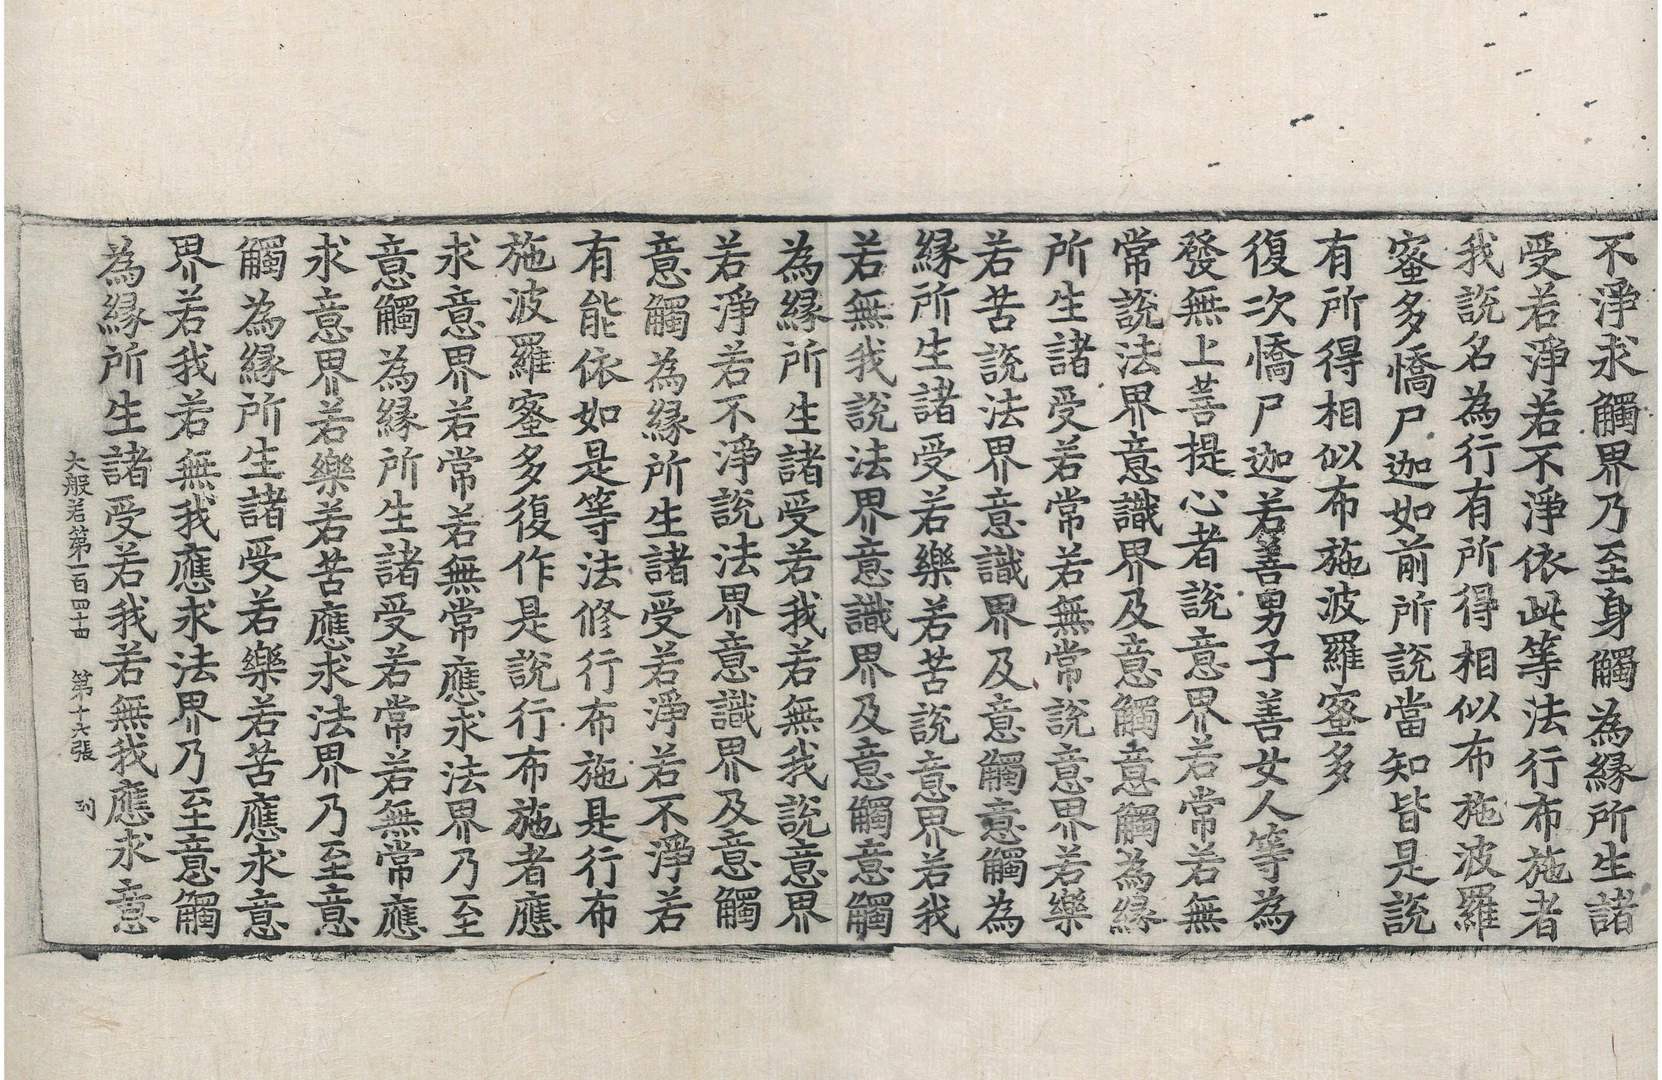 不淨求觸界乃至身觸為緣所生諸
受若淨若不淨依此等法行布施者
我說名為行有所得相似布施波羅
蜜多憍尸迦如前所說當知皆是說
有所得相似布施波羅蜜多
復次憍尸迦若善男子善女人等為
發無上菩提心者說意界若常若無
常說法界意識界及意觸意觸為緣
所生諸受若常若無常說意界若樂
若苦說法界意識界及意觸意觸為
緣所生諸受若樂若苦說意界若我
若無我說法界意識界及意觸意觸
為緣所生諸受若我若無我說意界
若淨若不淨說法界意識界及意觸
意觸為緣所生諸受若淨若不淨若
有能依如是等法修行布施是行布
施波羅蜜多復作是說行布施者應
求意界若常若無常應求法界乃至
意觸為緣所生諸受若常若無常應
求意界若樂若苦應求法界乃至意
觸為緣所生諸受若樂若苦應求意
界若我若無我應求法界乃至意觸
為緣所生諸受若我若無我應求意
大般若第一百四十四 第十六張